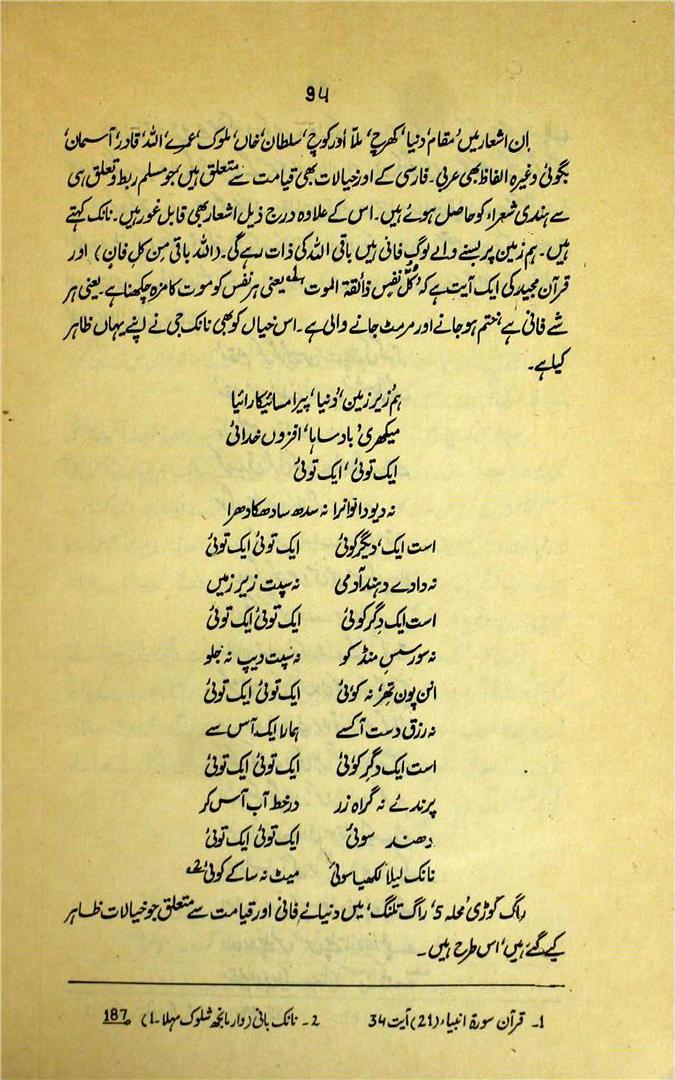 94
اِن اشعار میں ’مقام‘ دنیا‘ کھرچ‘ ملّا اور کوچ‘ سلطان‘ خاں‘ ملوک‘ عمرے‘ اللہ‘ قادر‘ آسمان‘
بگوئی وغیرہ الفاظ بھی عربی۔ فارسی کے اور خیالات بھی قیامت سے متعلق ہیں‘ جو مسلم ربط و تعلق ہی
سے ہندی شعراء کو حاصل ہوئے ہیں۔ اس کے علاوہ درج ذیل اشعار بھی قابل غور ہیں۔ نانک کہتے
ہیں۔ ہم زمین پر بسنے والے لوگ فانی ہیں باقی اللہ کی ذات رہے گی۔ (اللہ باقی مِن کل فانٍ) اور
قرآن مجید کی ایک آیت ہے کہ ’کُلّ نفسٍ ذائقۃ الموت‘1 یعنی ہر نفس کو موت کا مزہ چکھنا ہے۔ یعنی ہر
شے فانی ہے ختم ہو جانے اور مر مٹ جانے والی ہے۔ اس خیاں کو بھی نانک جی نے اپنے یہاں ظاہر
کیا ہے۔
ہم زیر زمین‘ دنیا‘ پیرا مسائیکا رائیا
میکھری‘ بادساہا‘ افزوں خدائی
ایک توئی‘ ایک توئی
نہ دیو دانوا نرا نہ سدھ سادھکا دھرا
است ایک‘ دیگر کوئی ایک توئی ایک توئی
نہ دادے دہند آدمی نہ سپت زیر زمیں
است ایک دِگر کوئی ایک توئی ایک توئی
نہ سور سسِ منڈ کو نہ سپت دیپ نہ جلو
انن پون تھِر نہ کوئی ایک توئی ایک توئی
نہ رزق دست آ کسے ہمارا ایک آس سے
است ایک دگر کوئی ایک توئی ایک توئی
پرندے نہ گراہ زر درخط آب آس کر
دھند سوئی ایک توئی ایک توئی
نانک لیلا لکھیا سوئی میٹ نہ ساکے کوئی2
راگ گوڑی‘ محلہ 5‘ راگ تلنگ‘ میں دنیائے فانی اور قیامت سے متعلق جو خیالات ظاہر
کیے گئے ہیں‘ اس طرح ہیں۔
1۔ قرآن سورۃ انبیاء (21) آیت 34 2۔ نانک بانی (وار مانجھ شلوک مہلا۔1) 187